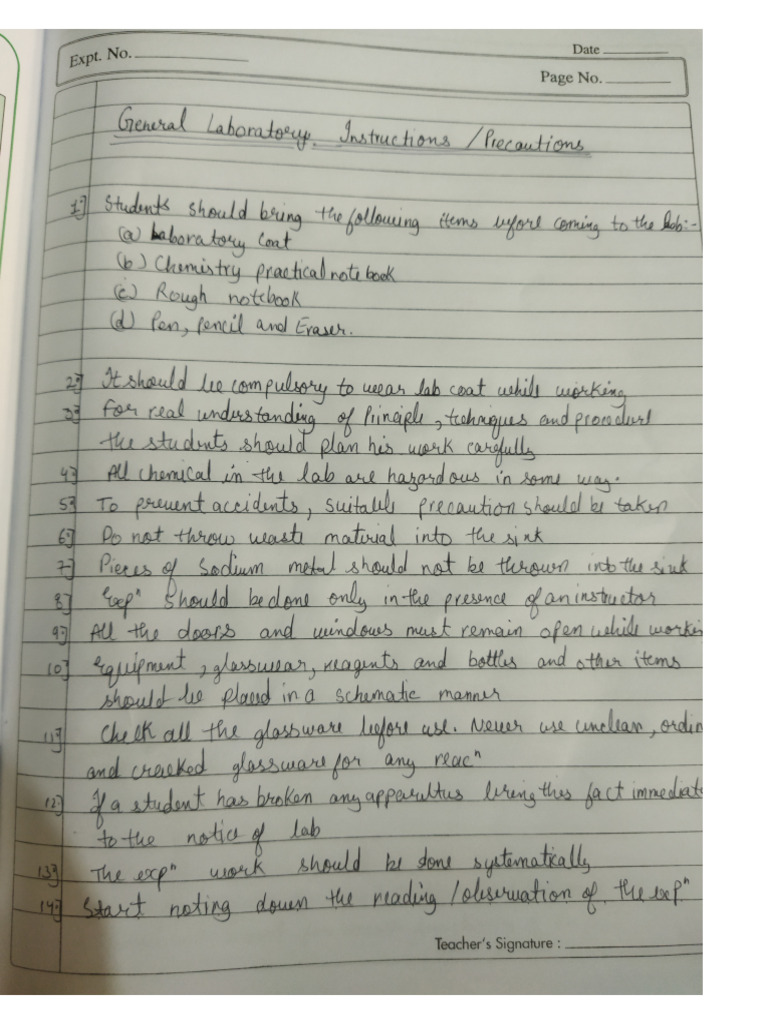 Expt. No.
Date
Page No.
General Laboratory Instructions / Precautions
1) Students should bring the following items before coming to the lab:-
(a) Laboratory Coat
(b) Chemistry practical note book
(c) Rough notebook
(d) Pen, pencil and Eraser.
2) It should be compulsory to wear lab coat while working
3) For real understanding of Principle, techniques and procedure
the students should plan his work carefully
4) All chemical in the lab are hazardous in some way.
5) To prevent accidents, suitable precaution should be taken
6) Do not throw waste material into the sink
7) Pieces of Sodium metal should not be thrown into the sink
8) Expⁿ should be done only in the presence of an instructor
9) All the doors and windows must remain open while workin
10) Equipment, glasswear, reagents and bottles and other items
should be placed in a schematic manner
11) Check all the glassware before use. Never use unclean, ordin
and cracked glassware for any reacⁿ
12) If a student has broken any apparultus bring this fact immediat
to the notice of lab
13) The expⁿ work should be done systematically
14) Start noting down the reading / observation of the expⁿ
Teacher's Signature :